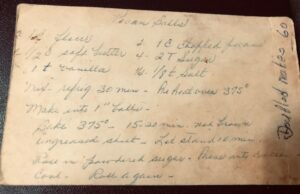 Pecan Balls
2 C flour 2. 1 C Chopped pecans
1/2 C soft butter 4 - 2 T sugar
1 t vanilla 1/8 t salt
Mix refrig 30 min - Preheat oven 375°
Make into 1" balls -
Bake 375° - 15-20 min. not brown
ungreased sheet - Let stand 10 min
Roll in powdered sugar -
Cool - Roll again -
Doubled makes 60